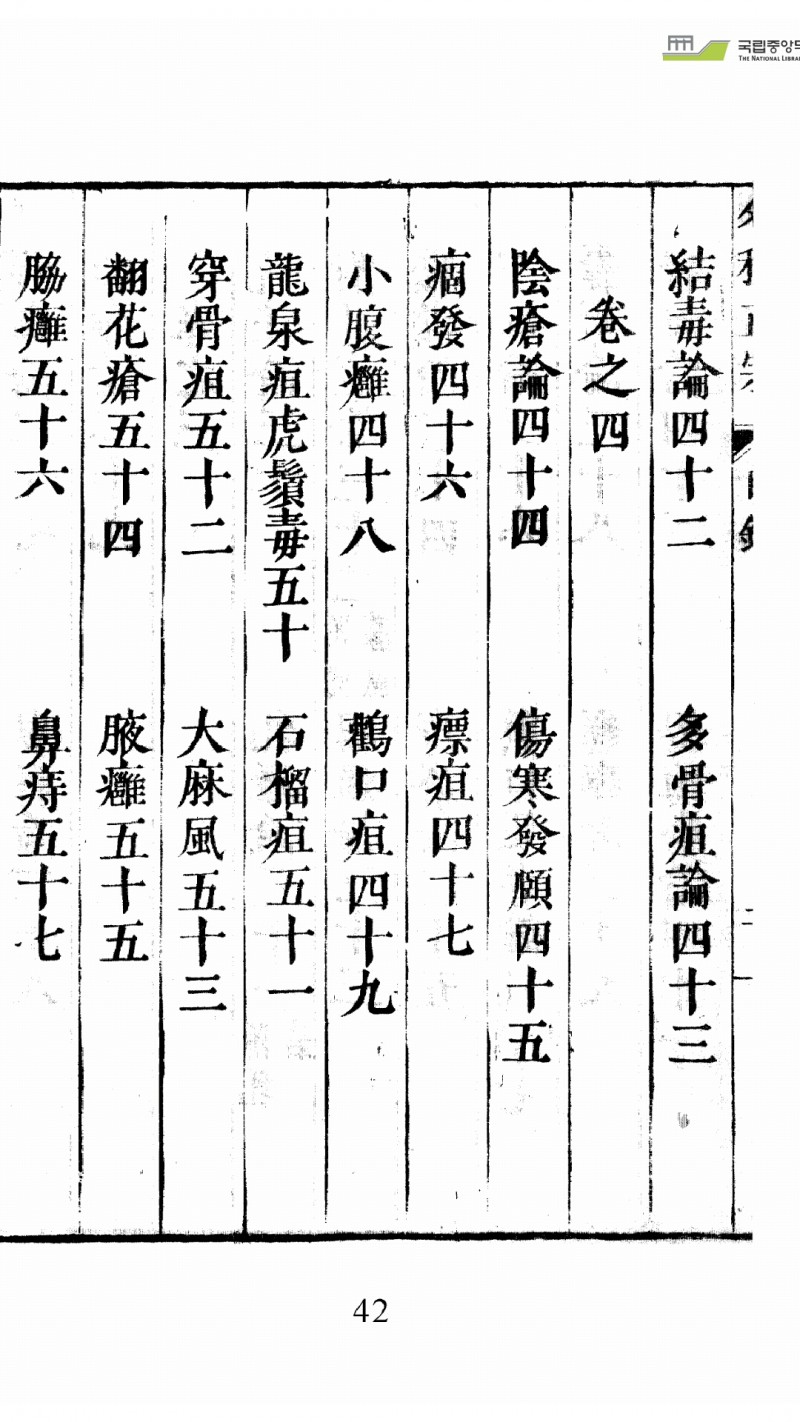 국립중앙도
THE NATIONAL LIBRA
結毒論四十二 多骨疽論四十三
卷之四
陰瘡論四十四 傷寒發頤四十五
痼發四十六 瘭疽四十七
小腹癰四十八 鸛口疽四十九
龍泉疽虎鬚毒五十 石榴疽五十一
穿骨疽五十二 大麻風五十三
翻花瘡五十四 腋癰五十五
脇癰五十六 鼻痔五十七
42